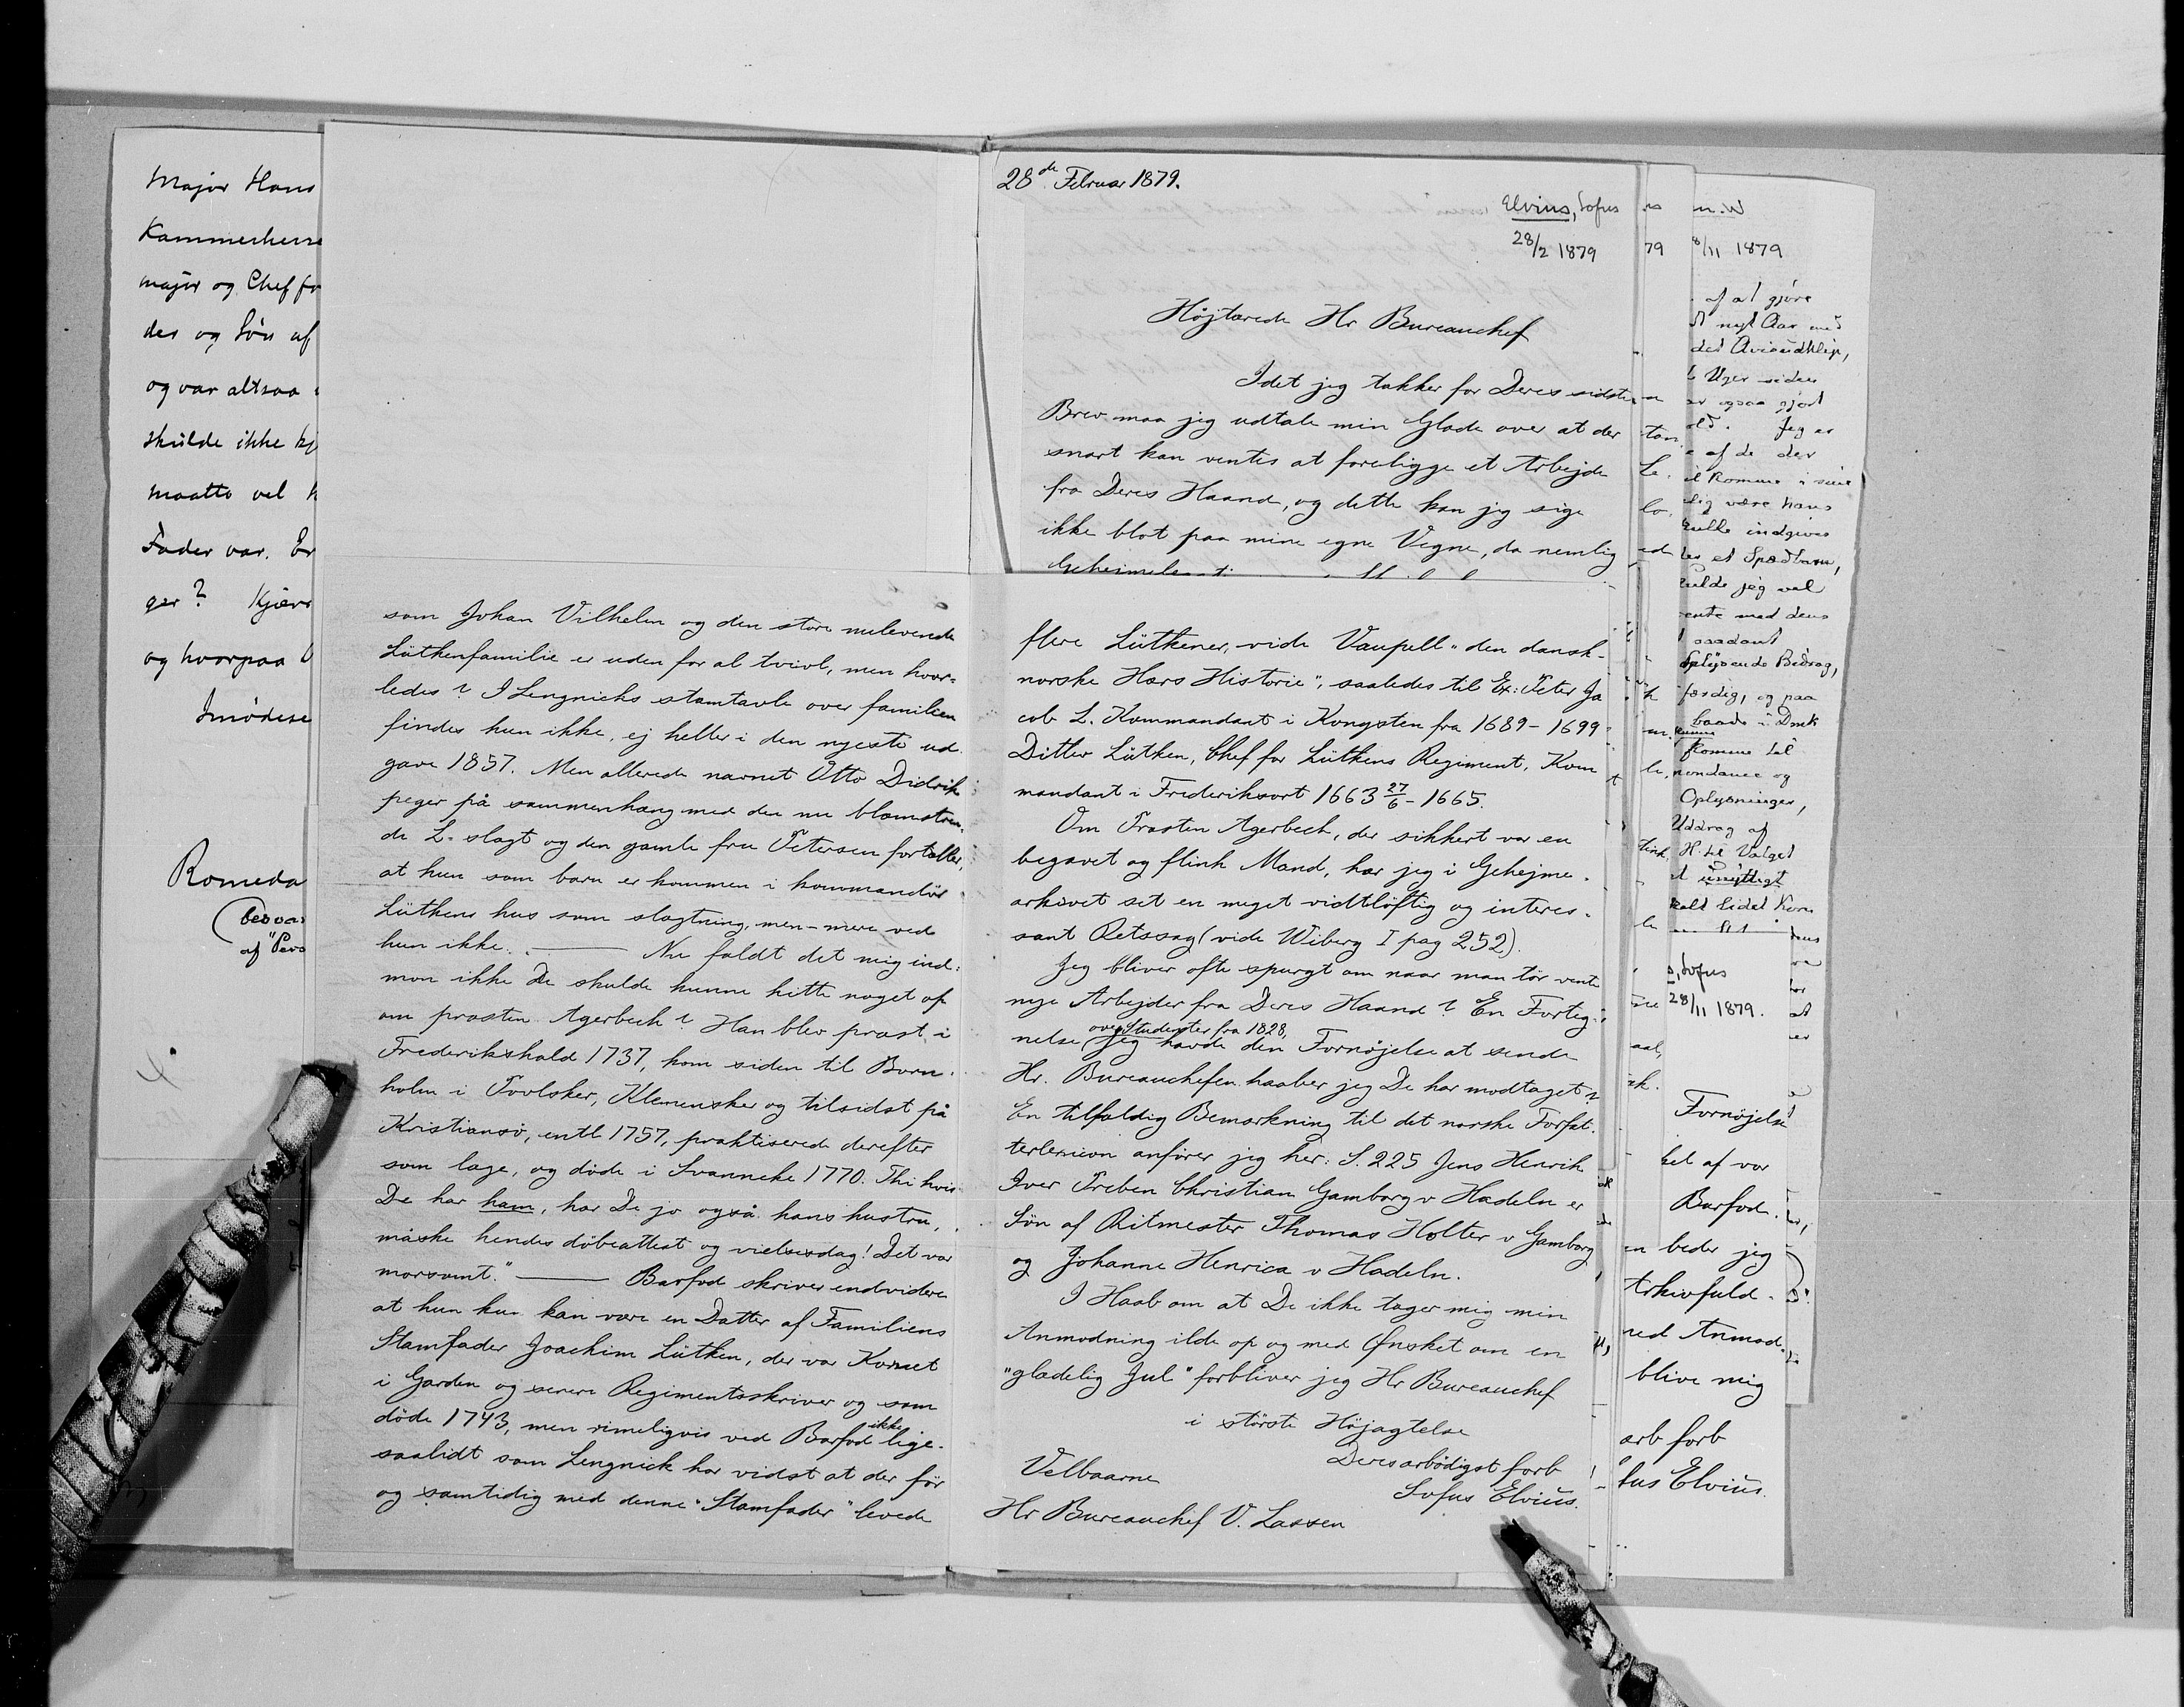 Major Hans
Kammerherre
major og Chef for
des og Søn af
og var altsaa
skulde ikke kj
maatte vel
Fader var. Er
ger? Kjær
og hvorpaa
Imødese
Romeda
(besvar
af "Pers
28de Februar 1879.
Elvius, Sofus
28/2 1879
Højtærede Hr Bureauchef
Idet jeg takker for Deres sidste
Brev maa jeg udtale min Glæde over at der
snart kan ventes at foreligge et Arbejde
fra Deres Haand, og dette kan jeg sige
ikke blot paa mine egne Vegne, da nemlig
som Johan Vilhelm og den store nulevende
Lütkenfamilie er uden for al tvivl, men hvor-
ledes? I Lengnicks stamtavle over familien
findes hun ikke, ej heller i den nyeste ud-
gave 1857. Men allerede navnet Otto Didrik
peger på sammenhæng med den nu blomstren-
de L-slægt og den gamle fru Petersen fortæller,
at hun som barn er kommen i kommandör
Lütkens hus som slægtning, men – mere ved
hun ikke. —— Nu faldt det mig ind:
mon ikke De skulde kunne hitte noget op
om præsten Agerbech? Han blev præst i
Frederikshald 1737, kom siden til Born-
holm i Povlsker, Klemensker og tilsidst på
Kristiansö, entl 1757, praktiserede derefter
som læge, og döde i Svanneke 1770. Thi hvis
De har ham, har De jo også hans hustru,
måske hendes döbeattest og vielsesdag! Det var
morsomt." —— Barfod skriver endvidere
at hun kun kan være en Datter af Familiens
Stamfader Joachim Lütken, der var Kornet
i Garden og senere Regimentsskriver og som
döde 1743, men rimeligvis ved Barfod ikke lige-
saalidt som Lengnick har vidst at der før
og samtidig med denne "Stamfader" levede
flere Lütkener, vide Vaupell "den dansk-
norske Hærs Historie", saaledes til Ex: Peter Ja
cob L. Kommandant i Kongsten fra 1689 – 1699
Ditlev Lütken, Chef for Lütkens Regiment, Kom
mandant i Frederiksort 1663 27/6 – 1665.
Om Præsten Agerbech, der sikkert var en
begavet og flink Mand, har jeg i Gehejme-
arkivet set en meget vidtløftig og interes-
sant Retssag (vide Wiberg I pag 252).
Jeg bliver ofte spurgt om naar man tør vente
nye Arbejder fra Deres Haand? En Forteg-
nelse over Studenter fra 1828, jeg havde den Fornøjelse at sende
Hr. Bureauchefen haaber jeg De har modtaget?
En tilfældig Bemærkning til det norske Forfat-
terlexicon anfører jeg her: S. 225 Jens Henrik
Iver Preben Christian Gamborg v Hadeln er
Søn af Ritmester Thomas Holter v Gamborg
og Johanne Henrica v Hadeln.
I Haab om at De ikke tager mig min
Anmodning ilde op og med Ønsket om en
"glædelig Jul" forbliver jeg Hr Bureauchef
i største Højagtelse
Deres ærbødigst forb
Sofus Elvius.
Velbaarne
Hr Bureauchef V. Lassen
8/11 1879
af at gjøre
nyt Aar med
det Avisudklip,
Uger siden
ogsaa gjort
Jeg er
af de der
Komme i sine
være hans
indgives
et Spædbarn,
jeg vel
med dens
saadant
oplysende Bidrag,
færdig, og paa
baade i Druk
komme til
Oplysninger,
Uddrag af
H. til Valget
unyttigt
, Sofus
28/11 1879.
Fornøjelse
ket af vor
Barfod.
en beder jeg
Arkivfuld-
ved Anmod-
blive mig
ærb forb
fus Elvius.